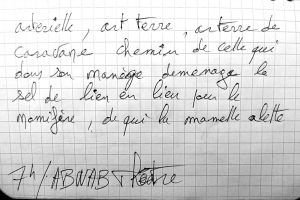 arterielle, art terre, arterre de
caravane chemin de celle qui
dans son manège demenage le
sel de lien en lien pour le
mamifère, de qui la mamelle alette
7h/ABWAB